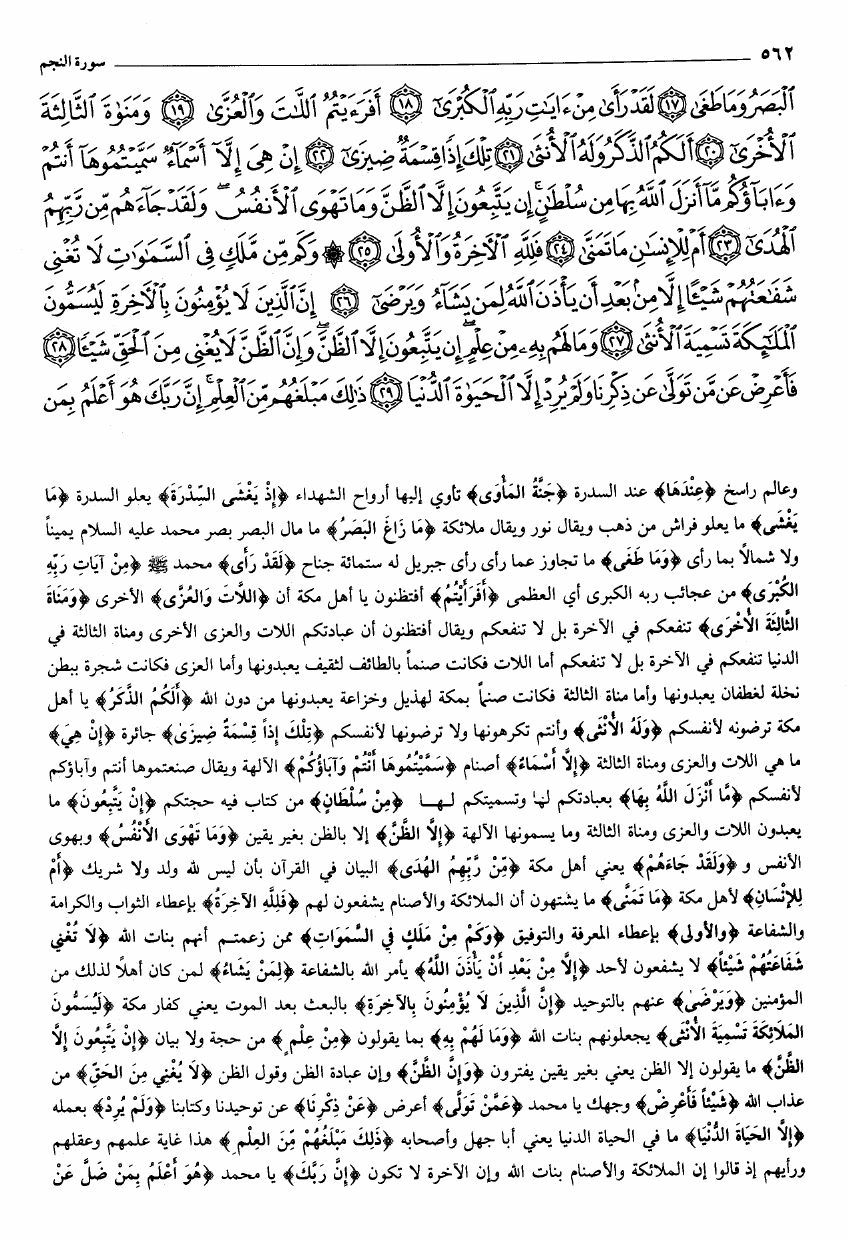 ٥٦٢ سورة النجم
ٱلْبَصَرُ وَمَا طَغَىٰ ﴿١٧﴾ لَقَدْ رَأَىٰ مِنْ ءَايَـٰتِ رَبِّهِ ٱلْكُبْرَىٰٓ ﴿١٨﴾ أَفَرَءَيْتُمُ ٱللَّـٰتَ وَٱلْعُزَّىٰ ﴿١٩﴾ وَمَنَوٰةَ ٱلثَّالِثَةَ
ٱلْأُخْرَىٰٓ ﴿٢٠﴾ أَلَكُمُ ٱلذَّكَرُ وَلَهُ ٱلْأُنثَىٰ ﴿٢١﴾ تِلْكَ إِذًا قِسْمَةٌ ضِيزَىٰٓ ﴿٢٢﴾ إِنْ هِىَ إِلَّآ أَسْمَآءٌ سَمَّيْتُمُوهَآ أَنتُمْ
وَءَابَآؤُكُم مَّآ أَنزَلَ ٱللَّهُ بِهَا مِن سُلْطَـٰنٍ ۚ إِن يَتَّبِعُونَ إِلَّا ٱلظَّنَّ وَمَا تَهْوَى ٱلْأَنفُسُ ۖ وَلَقَدْ جَآءَهُم مِّن رَّبِّهِمُ
ٱلْهُدَىٰٓ ﴿٢٣﴾ أَمْ لِلْإِنسَـٰنِ مَا تَمَنَّىٰ ﴿٢٤﴾ فَلِلَّهِ ٱلْـَٔاخِرَةُ وَٱلْأُولَىٰ ﴿٢٥﴾ ۞ وَكَم مِّن مَّلَكٍ فِى ٱلسَّمَـٰوَٰتِ لَا تُغْنِى
شَفَـٰعَتُهُمْ شَيْـًٔا إِلَّا مِنۢ بَعْدِ أَن يَأْذَنَ ٱللَّهُ لِمَن يَشَآءُ وَيَرْضَىٰٓ ﴿٢٦﴾ إِنَّ ٱلَّذِينَ لَا يُؤْمِنُونَ بِٱلْـَٔاخِرَةِ لَيُسَمُّونَ
ٱلْمَلَـٰٓئِكَةَ تَسْمِيَةَ ٱلْأُنثَىٰ ﴿٢٧﴾ وَمَا لَهُم بِهِۦ مِنْ عِلْمٍ ۖ إِن يَتَّبِعُونَ إِلَّا ٱلظَّنَّ ۖ وَإِنَّ ٱلظَّنَّ لَا يُغْنِى مِنَ ٱلْحَقِّ شَيْـًٔا ﴿٢٨﴾
فَأَعْرِضْ عَن مَّن تَوَلَّىٰ عَن ذِكْرِنَا وَلَمْ يُرِدْ إِلَّا ٱلْحَيَوٰةَ ٱلدُّنْيَا ﴿٢٩﴾ ذَٰلِكَ مَبْلَغُهُم مِّنَ ٱلْعِلْمِ ۚ إِنَّ رَبَّكَ هُوَ أَعْلَمُ بِمَن
وعالم راسخ ﴿عِنْدَهَا﴾ عند السدرة ﴿جَنَّةُ المَأْوَى﴾ تأوي إليها أرواح الشهداء ﴿إِذْ يَغْشَى السِّدْرَةَ﴾ يعلو السدرة ﴿مَا
يَغْشَى﴾ ما يعلو فراش من ذهب ويقال نور ويقال ملائكة ﴿مَا زَاغَ البَصَرُ﴾ ما مال البصر بصر محمد عليه السلام يميناً
ولا شمالاً بما رأى ﴿وَمَا طَغَى﴾ ما تجاوز عما رأى رأى جبريل له ستمائة جناح ﴿لَقَدْ رَأى﴾ محمد ﷺ ﴿مِنْ آيَاتِ رَبِّهِ
الكُبْرَى﴾ من عجائب ربه الكبرى أي العظمى ﴿أَفَرَأَيْتُمُ﴾ أفتظنون يا أهل مكة أن ﴿اللَّاتَ وَالعُزَّى﴾ الأخرى ﴿وَمَنَاةَ
الثَّالِثَةَ الأُخْرَى﴾ تنفعكم في الآخرة بل لا تنفعكم ويقال أفتظنون أن عبادتكم اللات والعزى الأخرى ومناة الثالثة في
الدنيا تنفعكم في الآخرة بل لا تنفعكم أما اللات فكانت صنماً بالطائف لثقيف يعبدونها وأما العزى فكانت شجرة ببطن
نخلة لغطفان يعبدونها وأما مناة الثالثة فكانت صنماً بمكة لهذيل وخزاعة يعبدونها من دون الله ﴿أَلَكُمُ الذَّكَرُ﴾ يا أهل
مكة ترضونه لأنفسكم ﴿وَلَهُ الأُنْثَى﴾ وأنتم تكرهونها ولا ترضونها لأنفسكم ﴿تِلْكَ إِذاً قِسْمَةٌ ضِيزَى﴾ جائرة ﴿إِنْ هِيَ﴾
ما هي اللات والعزى ومناة الثالثة ﴿إِلَّا أَسْمَاءٌ﴾ أصنام ﴿سَمَّيْتُمُوهَا أَنْتُمْ وَآبَاؤُكُمْ﴾ الآلهة ويقال صنعتموها أنتم وآباؤكم
لأنفسكم ﴿مَّا أَنْزَلَ اللَّهُ بِهَا﴾ بعبادتكم لها وتسميتكم لـهـا ﴿مِنْ سُلْطَانٍ﴾ من كتاب فيه حجتكم ﴿إِنْ يَتَّبِعُونَ﴾ ما
يعبدون اللات والعزى ومناة الثالثة وما يسمونها الآلهة ﴿إِلَّا الظَّنَّ﴾ إلا بالظن بغير يقين ﴿وَمَا تَهْوَى الأَنْفُسُ﴾ وبهوى
الأنفس و ﴿وَلَقَدْ جَاءَهُمْ﴾ يعني أهل مكة ﴿مِّنْ رَّبِّهِمُ الهُدَى﴾ البيان في القرآن بأن ليس لله ولد ولا شريك ﴿أَمْ
لِلإِنْسَانِ﴾ لأهل مكة ﴿مَا تَمَنَّى﴾ ما يشتهون أن الملائكة والأصنام يشفعون لهم ﴿فَلِلَّهِ الآخِرَةُ﴾ بإعطاء الثواب والكرامة
والشفاعة ﴿والأولى﴾ بإعطاء المعرفة والتوفيق ﴿وَكَمْ مِنْ مَلَكٍ في السَّمَوَاتِ﴾ ممن زعمتـم أنهم بنات الله ﴿لَا تُغْنِي
شَفَاعَتُهُمْ شَيْئاً﴾ لا يشفعون لأحد ﴿إِلَّا مِنْ بَعْدِ أَنْ يَأْذَنَ اللَّهُ﴾ يأمر الله بالشفاعة ﴿لِمَنْ يَشَاءُ﴾ لمن كان أهلاً لذلك من
المؤمنين ﴿وَيَرْضَى﴾ عنهم بالتوحيد ﴿إِنَّ الَّذِينَ لَا يُؤْمِنُونَ بِالآخِرَةِ﴾ بالبعث بعد الموت يعني كفار مكة ﴿لَيُسَمُّونَ
المَلَائِكَةَ تَسْمِيَةَ الأُنْثَى﴾ يجعلونهم بنات الله ﴿وَمَا لَهُمْ بِهِ﴾ بما يقولون ﴿مِنْ عِلْمٍ﴾ من حجة ولا بيان ﴿إِنْ يَتَّبِعُونَ إِلَّا
الظَّنَّ﴾ ما يقولون إلا الظن يعني بغير يقين يفترون ﴿وَإِنَّ الظَّنَّ﴾ وإن عبادة الظن وقول الظن ﴿لَا يُغْنِي مِنَ الحَقِّ﴾ من
عذاب الله ﴿شَيْئاً فَأَعْرِضْ﴾ وجهك يا محمد ﴿عَمَّنْ تَوَلَّى﴾ أعرض ﴿عَنْ ذِكْرِنَا﴾ عن توحيدنا وكتابنا ﴿وَلَمْ يُرِدْ﴾ بعمله
﴿إِلَّا الحَيَاةَ الدُّنْيَا﴾ ما في الحياة الدنيا يعني أبا جهل وأصحابه ﴿ذَلِكَ مَبْلَغُهُمْ مِّنَ العِلْمِ﴾ هذا غاية علمهم وعقلهم
ورأيهم إذ قالوا إن الملائكة والأصنام بنات الله وإن الآخرة لا تكون ﴿إِنَّ رَبَّكَ﴾ يا محمد ﴿هُوَ أَعْلَمُ بِمَنْ ضَلَّ عَنْ